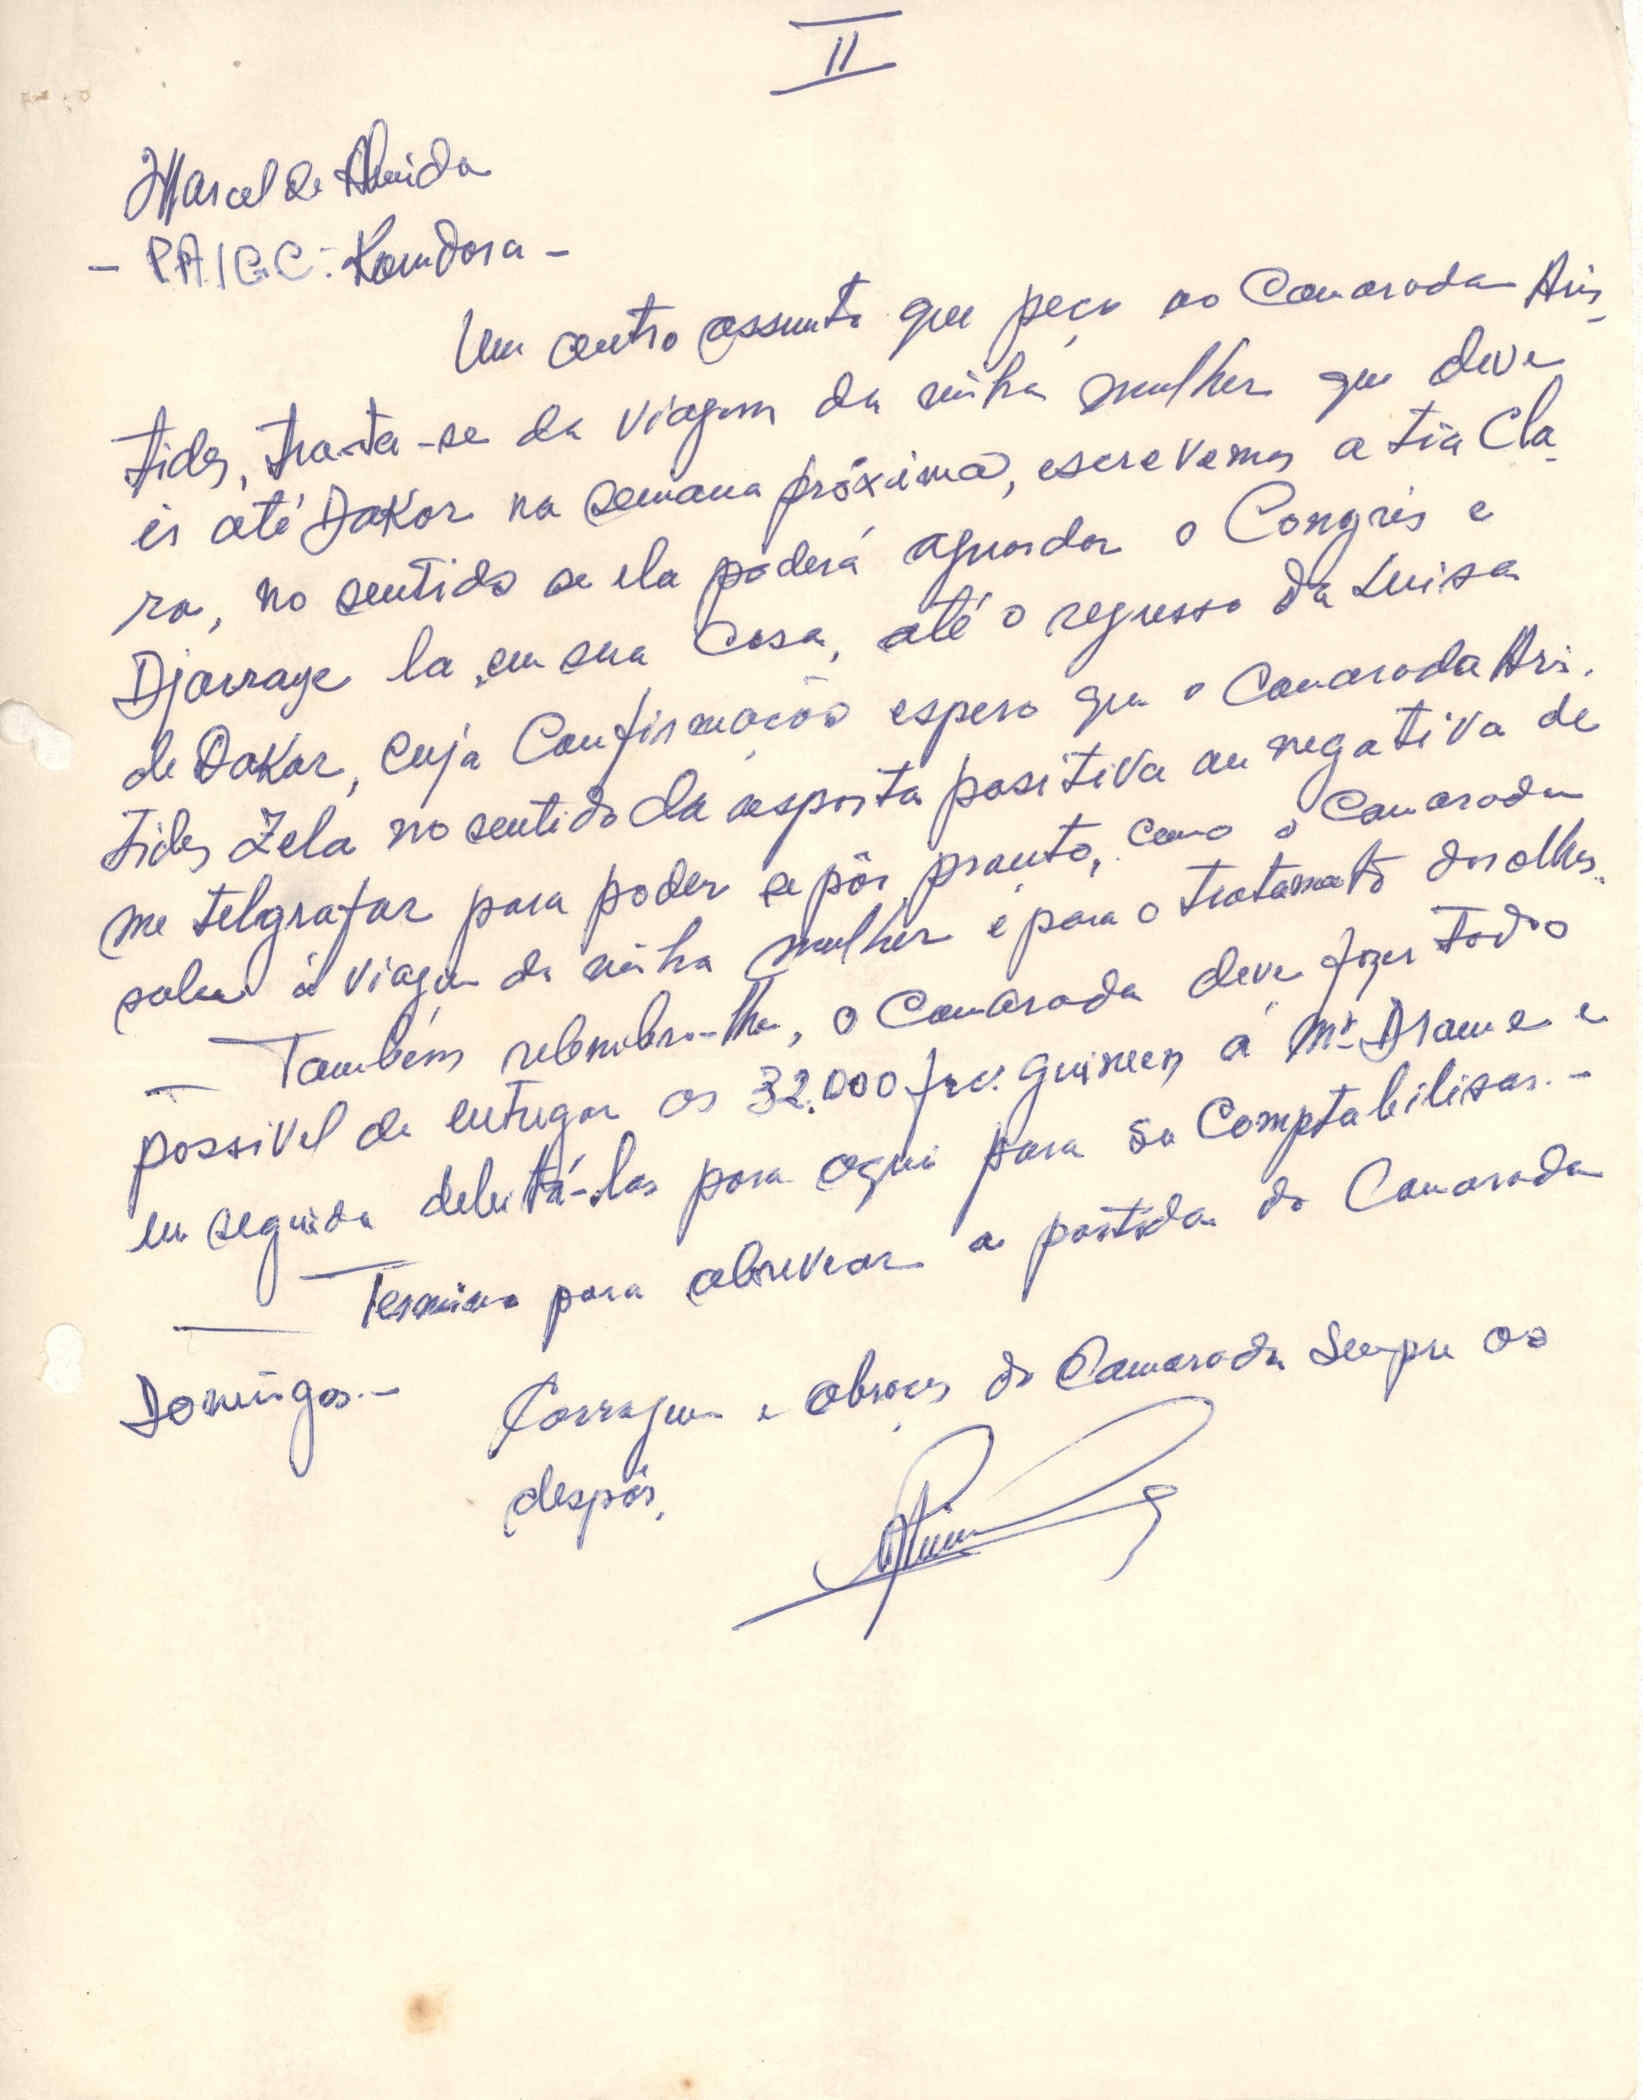 II
Marcel de Almeida
- P.A.I.G.C. Koundara -
Um outro assunto que peço ao Camarada Aris_
tides, trata-se da viagem da minha mulher que deve
ir até Dakar na semana próxima, escrevemos a tia Cla_
ra, no sentido se ela poderá aguardar o Congrés e
la em sua Casa, até o regresso da Luisa
de Dakar, cuja Confirmação espero que o Camarada Aris.
tides Zela no sentido da resposta positiva ou negativa de
me telegrafar para poder se pôr pronto, como o Camarada
sabem à viagem da minha mulher é para o tratamento dos olhos.
— Também relembro-lhe, o Camarada deve fazer todo
possivel de entregar os 32.000 frcs. guineens á Mr Drame e
em seguida debitá-las para aqui para se Comptabilisar.-
— Termino para abreviar a partida do Camarada
Domingos.-
Corragem e abraços do Camarada Sempre ao
despôr,